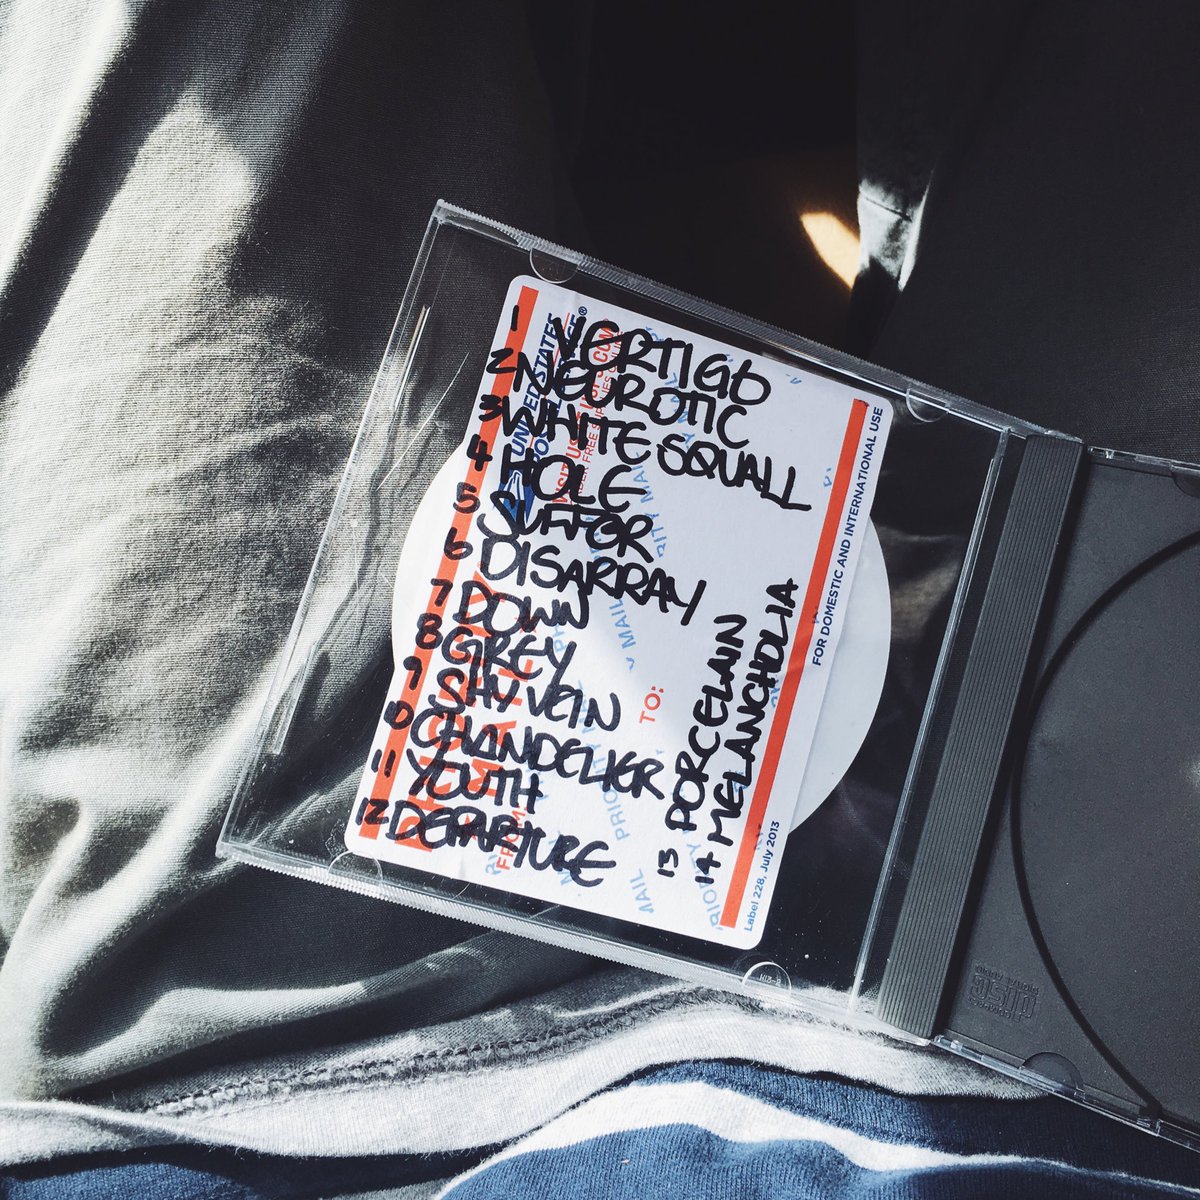 1 VERTIGO
2 NEUROTIC
3 WHITE SQUALL
4 HOLE
5 SUFFOR
6 DISARRAY
7 DOWN
8 GREY
9 SHY VEIN
10 CHANDELIER
11 YOUTH
12 DEPARTURE
13 PORCELAIN
14 MELANCHOLIA
UNITED STATES
TO:
FROM
FOR DOMESTIC AND INTERNATIONAL USE
Label 228, July 2013